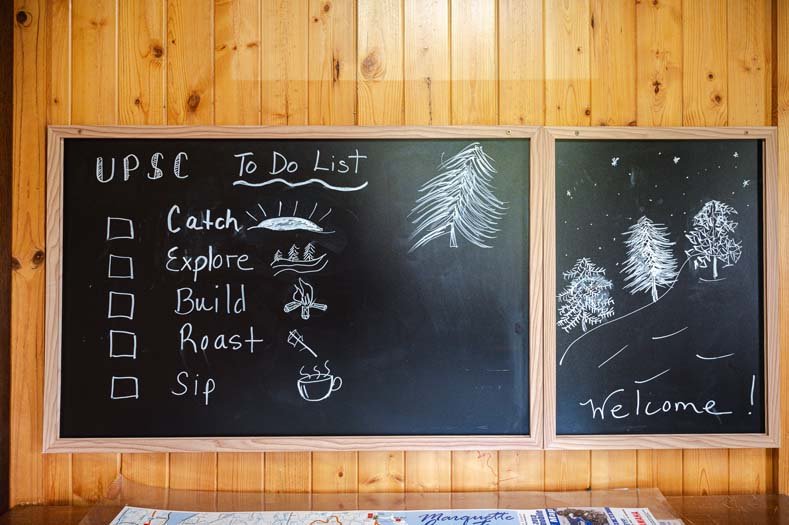 UPSC To Do List
Catch
Explore
Build
Roast
Sip
Welcome!
Marquette